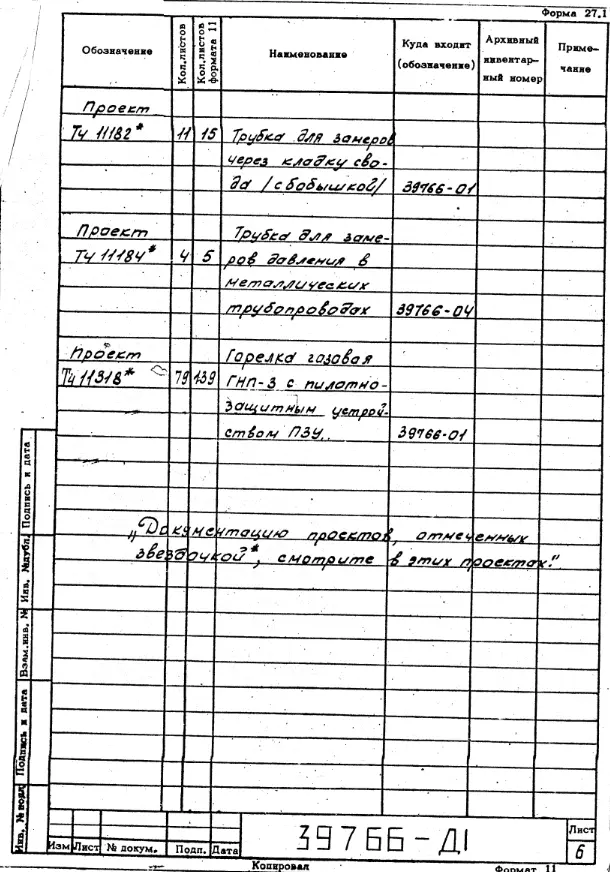 Форма 27.1
Обозначение
Кол.листов
Кол.листов формата 11
Наименование
Куда входит (обозначение)
Архивный инвентарный номер
Примечание
Проект
Тч 11182* 11 15 Трубка для замеров
через кладку сво-
да /с бобышкой/ 39766-01
Проект Трубка для заме-
Тч 11184* 4 5 ров давления в
металлических
трубопроводах 39766-04
Проект Горелка газовая
Тч 11318* 79 139 ГНП-3 с пилотно-
защитным устрой-
ством ПЗУ. 39766-01
„Документацию проектов, отмеченных
звездочкой*, смотрите в этих проектах."
Инв. № подл. Подпись и дата Взам.инв. № Инв. №дубл. Подпись и дата
39766-Д1
Лист
6
Изм Лист № докум. Подп. Дата
Копировал
Формат 11